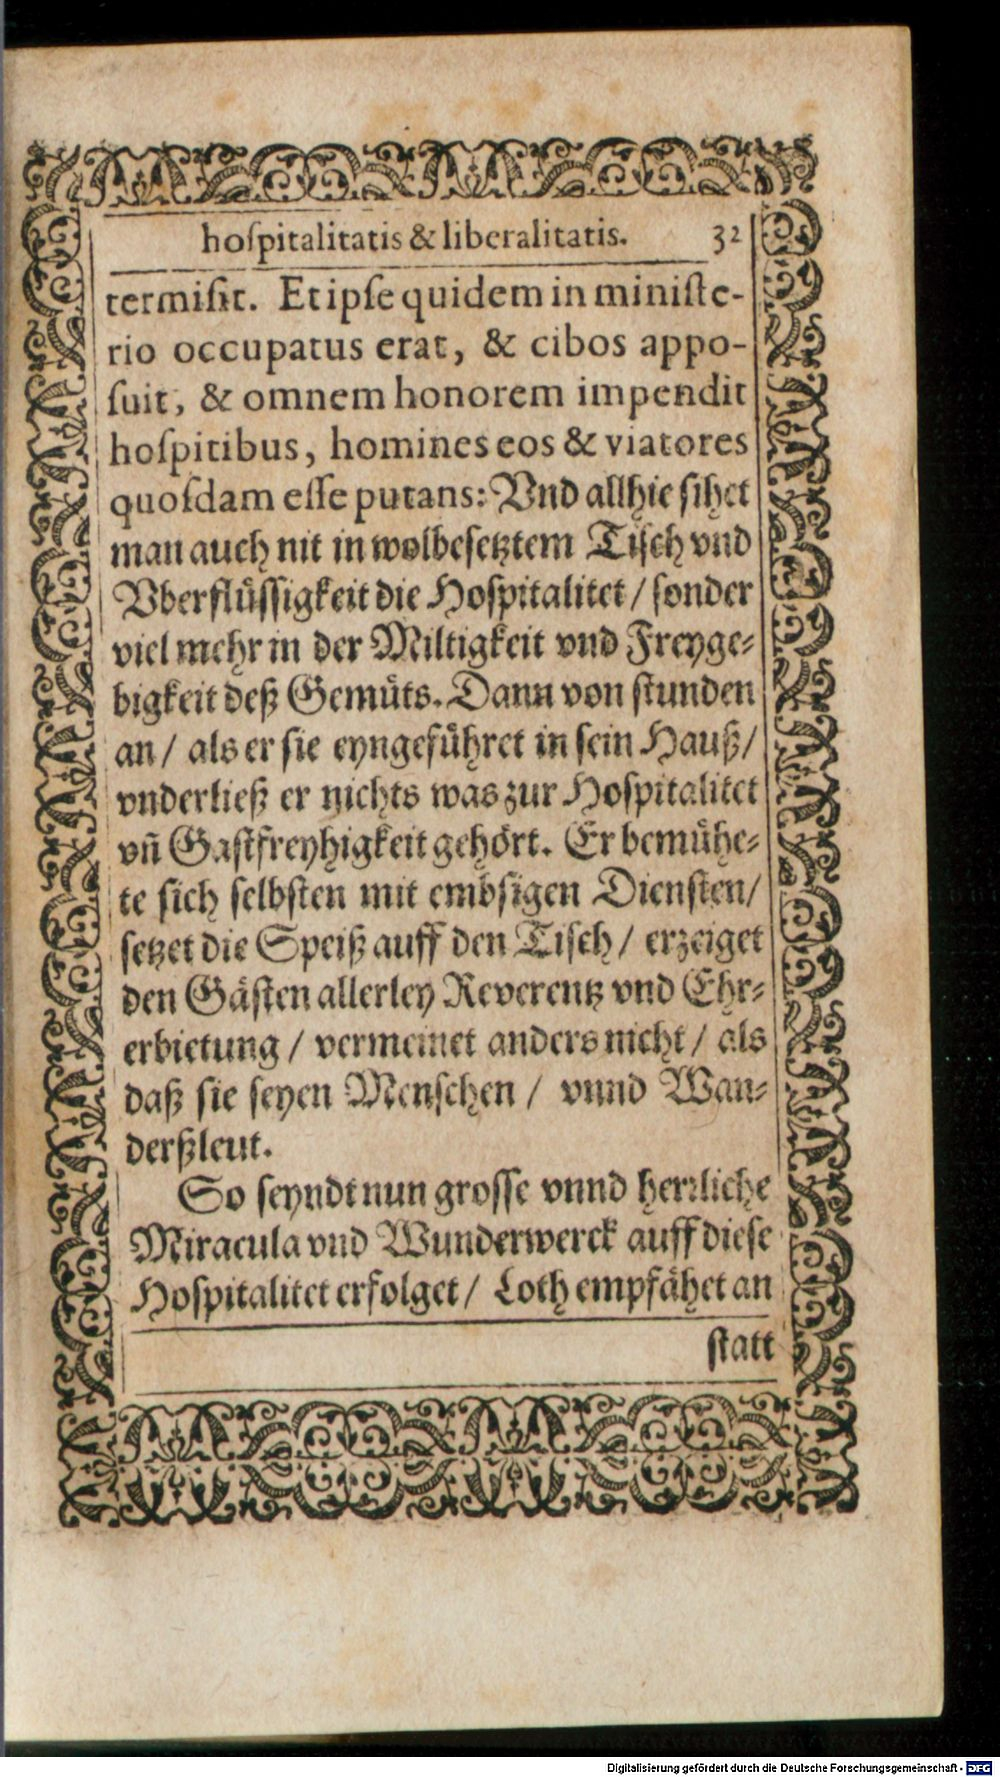 hoſpitalitatis & liberalitatis. 32
termiſit. Et ipſe quidem in miniſte-
rio occupatus erat, & cibos appo-
ſuit, & omnem honorem impendit
hoſpitibus, homines eos & viatores
quoſdam eſſe putans: Vnd allhie ſihet
man auch nit in wolbeſetztem Tiſch vnd
Vberflüſſigkeit die Hoſpitalitet / ſonder
viel mehr in der Miltigkeit vnd Freyge-
bigkeit deß Gemüts. Dann von ſtunden
an / als er ſie eyngeführet in ſein Hauß /
vnderließ er nichts was zur Hoſpitalitet
vñ Gaſtfreyhigkeit gehört. Er bemühe-
te ſich ſelbſten mit embſigen Dienſten /
ſetzet die Speiß auff den Tiſch / erzeiget
den Gäſten allerley Reverentz vnd Ehr-
erbietung / vermeinet anders nicht / als
daß ſie ſeyen Menſchen / vnnd Wan-
derßleut.
So ſeyndt nun groſſe vnnd herꝛliche
Miracula vnd Wunderwerck auff dieſe
Hoſpitalitet erfolget / Loth empfähet an
ſtatt
Digitalisierung gefördert durch die Deutsche Forschungsgemeinschaft - DFG